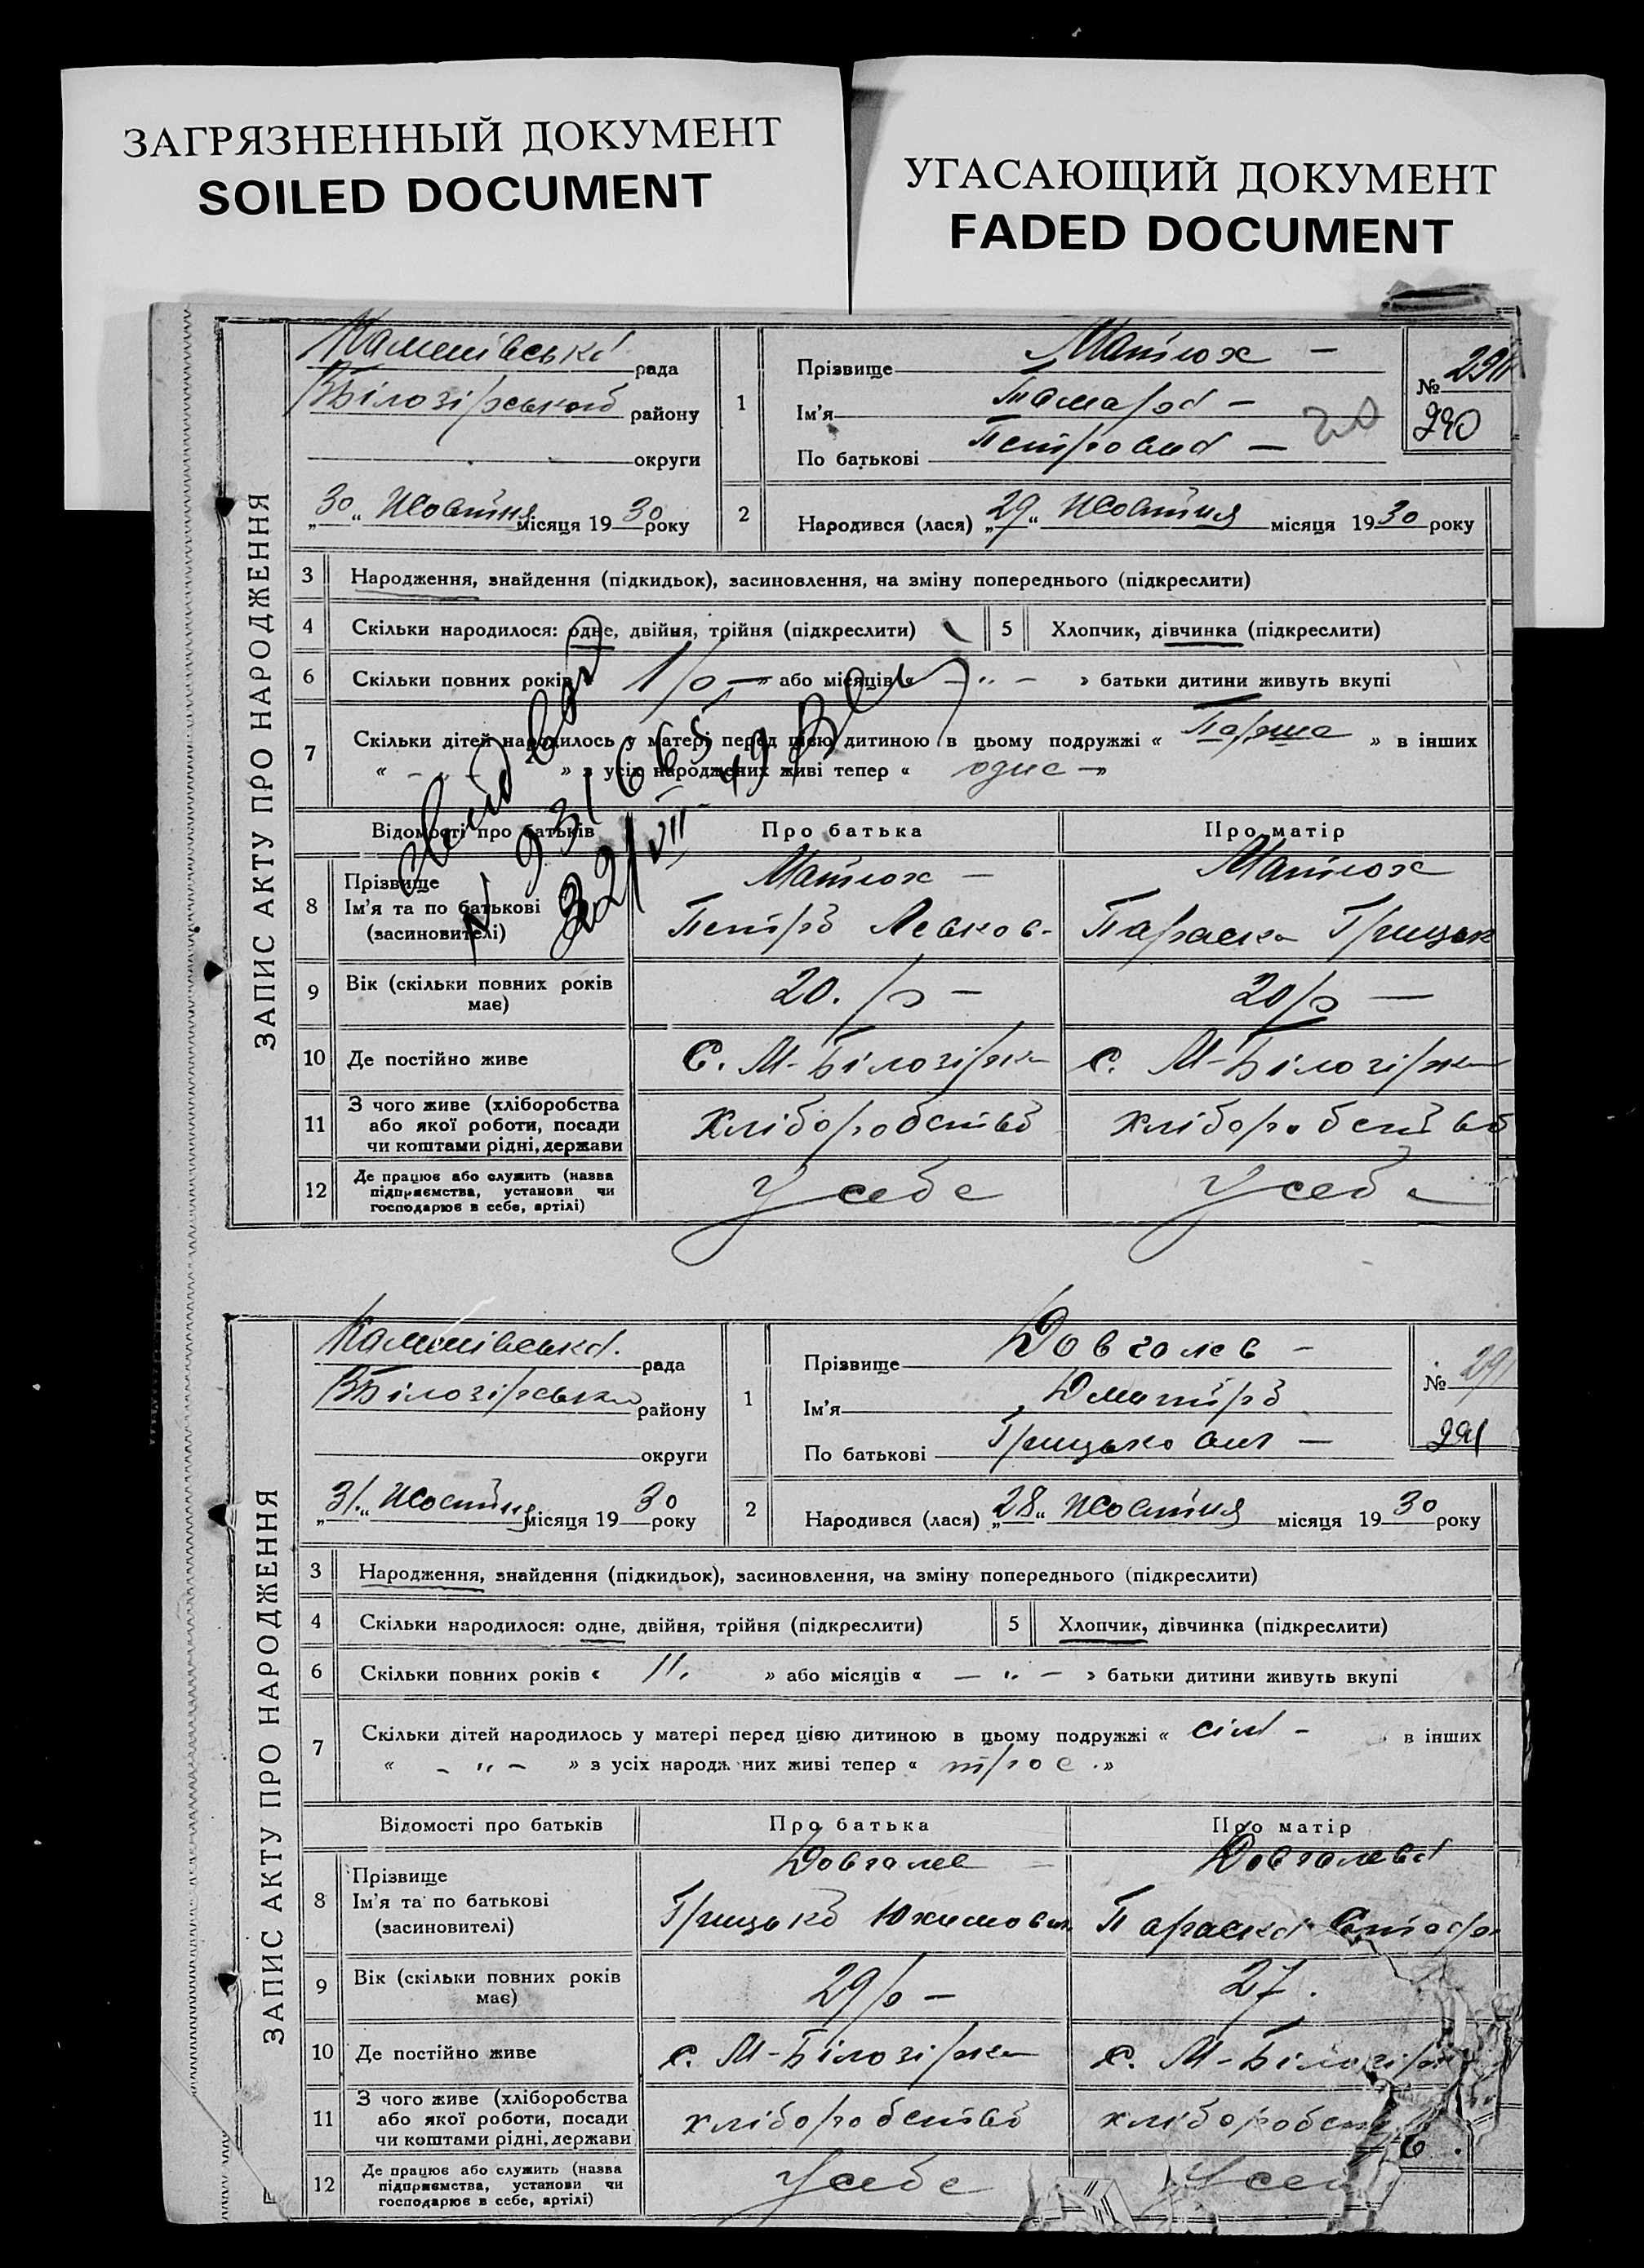 ЗАГРЯЗНЕННЫЙ ДОКУМЕНТ
SOILED DOCUMENT
УГАСАЮЩИЙ ДОКУМЕНТ
FADED DOCUMENT
ЗАПИС АКТУ ПРО НАРОДЖЕННЯ
рада
району
округи
„30“ Жовтня місяця 1930 року
1
Прізвище Матюх —
Ім'я Тамара —
По батькові Петровна —
20
№
290
2
Народився (лася) „29“ Жовтня місяця 1930 року
3 Народження, знайдення (підкидьок), засиновлення, на зміну попереднього (підкреслити)
4 Скільки народилося: одне, двійня, трійня (підкреслити)
5 Хлопчик, дівчинка (підкреслити)
6 Скільки повних років « 1 р — » або місяців « — „ — » батьки дитини живуть вкупі
7 Скільки дітей народилось у матері перед цією дитиною в цьому подружжі « Перше » в інших
« — „ — » з усіх народжених живі тепер « одне — »
931665
Відомості про батьків
Про батька
Про матір
8 Прізвище
Ім'я та по батькові
(засновителі)
Матюх —
Петро Левков-
Матюх
Параска Грицьк
9 Вік (скільки повних років має)
20. р —
20 р —
10 Де постійно живе
С. М-Білозірка
с. М-Білозірка
11 З чого живе (хліборобства
або якої роботи, посади
чи коштами рідні, держави
Хліборобство
Хліборобство
12 Де працює або служить (назва
підприємства, установи чи
господарює в себе, артілі)
У себе
У себе
ЗАПИС АКТУ ПРО НАРОДЖЕННЯ
рада
району
округи
„31“ Жовтня місяця 1930 року
1
Прізвище Довголев —
Ім'я Дмитро
По батькові Грицькович —
№ 291
291
2
Народився (лася) „28“ Жовтня місяця 1930 року
3 Народження, знайдення (підкидьок), засиновлення, на зміну попереднього (підкреслити)
4 Скільки народилося: одне, двійня, трійня (підкреслити)
5 Хлопчик, дівчинка (підкреслити)
6 Скільки повних років « 11. » або місяців « — „ — » батьки дитини живуть вкупі
7 Скільки дітей народилось у матері перед цією дитиною в цьому подружжі « сім — в інших
« — „ — » з усіх народж них живі тепер « троє . »
Відомості про батьків
Про батька
Про матір
8 Прізвище
Ім'я та по батькові
(засиновителі)
Довголев —
Грицько Юхимович
Довголева
Параска
9 Вік (скільки повних років має)
29 р —
27.
10 Де постійно живе
с. М-Білозірка
с. М-Білозірк
11 З чого живе (хліборобства
або якої роботи, посади
чи коштами рідні, держави
хліборобство
хліборобст
12 Де працює або служить (назва
підприємства, установи чи
господарює в себе, артілі)
У себе
У себ